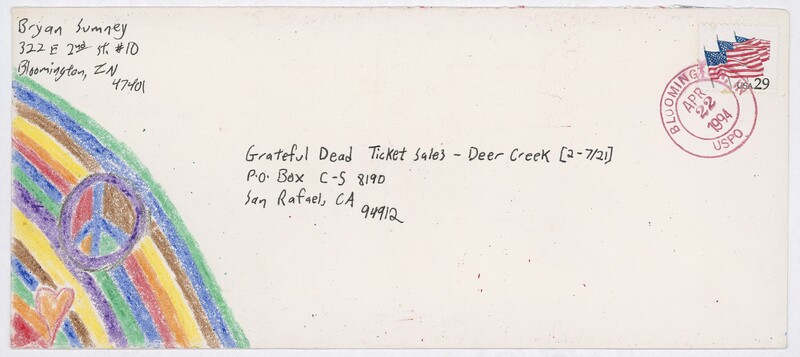 Bryan Sumney
322 E 2nd St. #10
Bloomington, IN
47401
USA 29
BLOOMINGTON
APR
22
1994
USPO
Grateful Dead Ticket Sales - Deer Creek [2-7/21]
P.O. Box C-S 8190
San Rafael, CA
94912